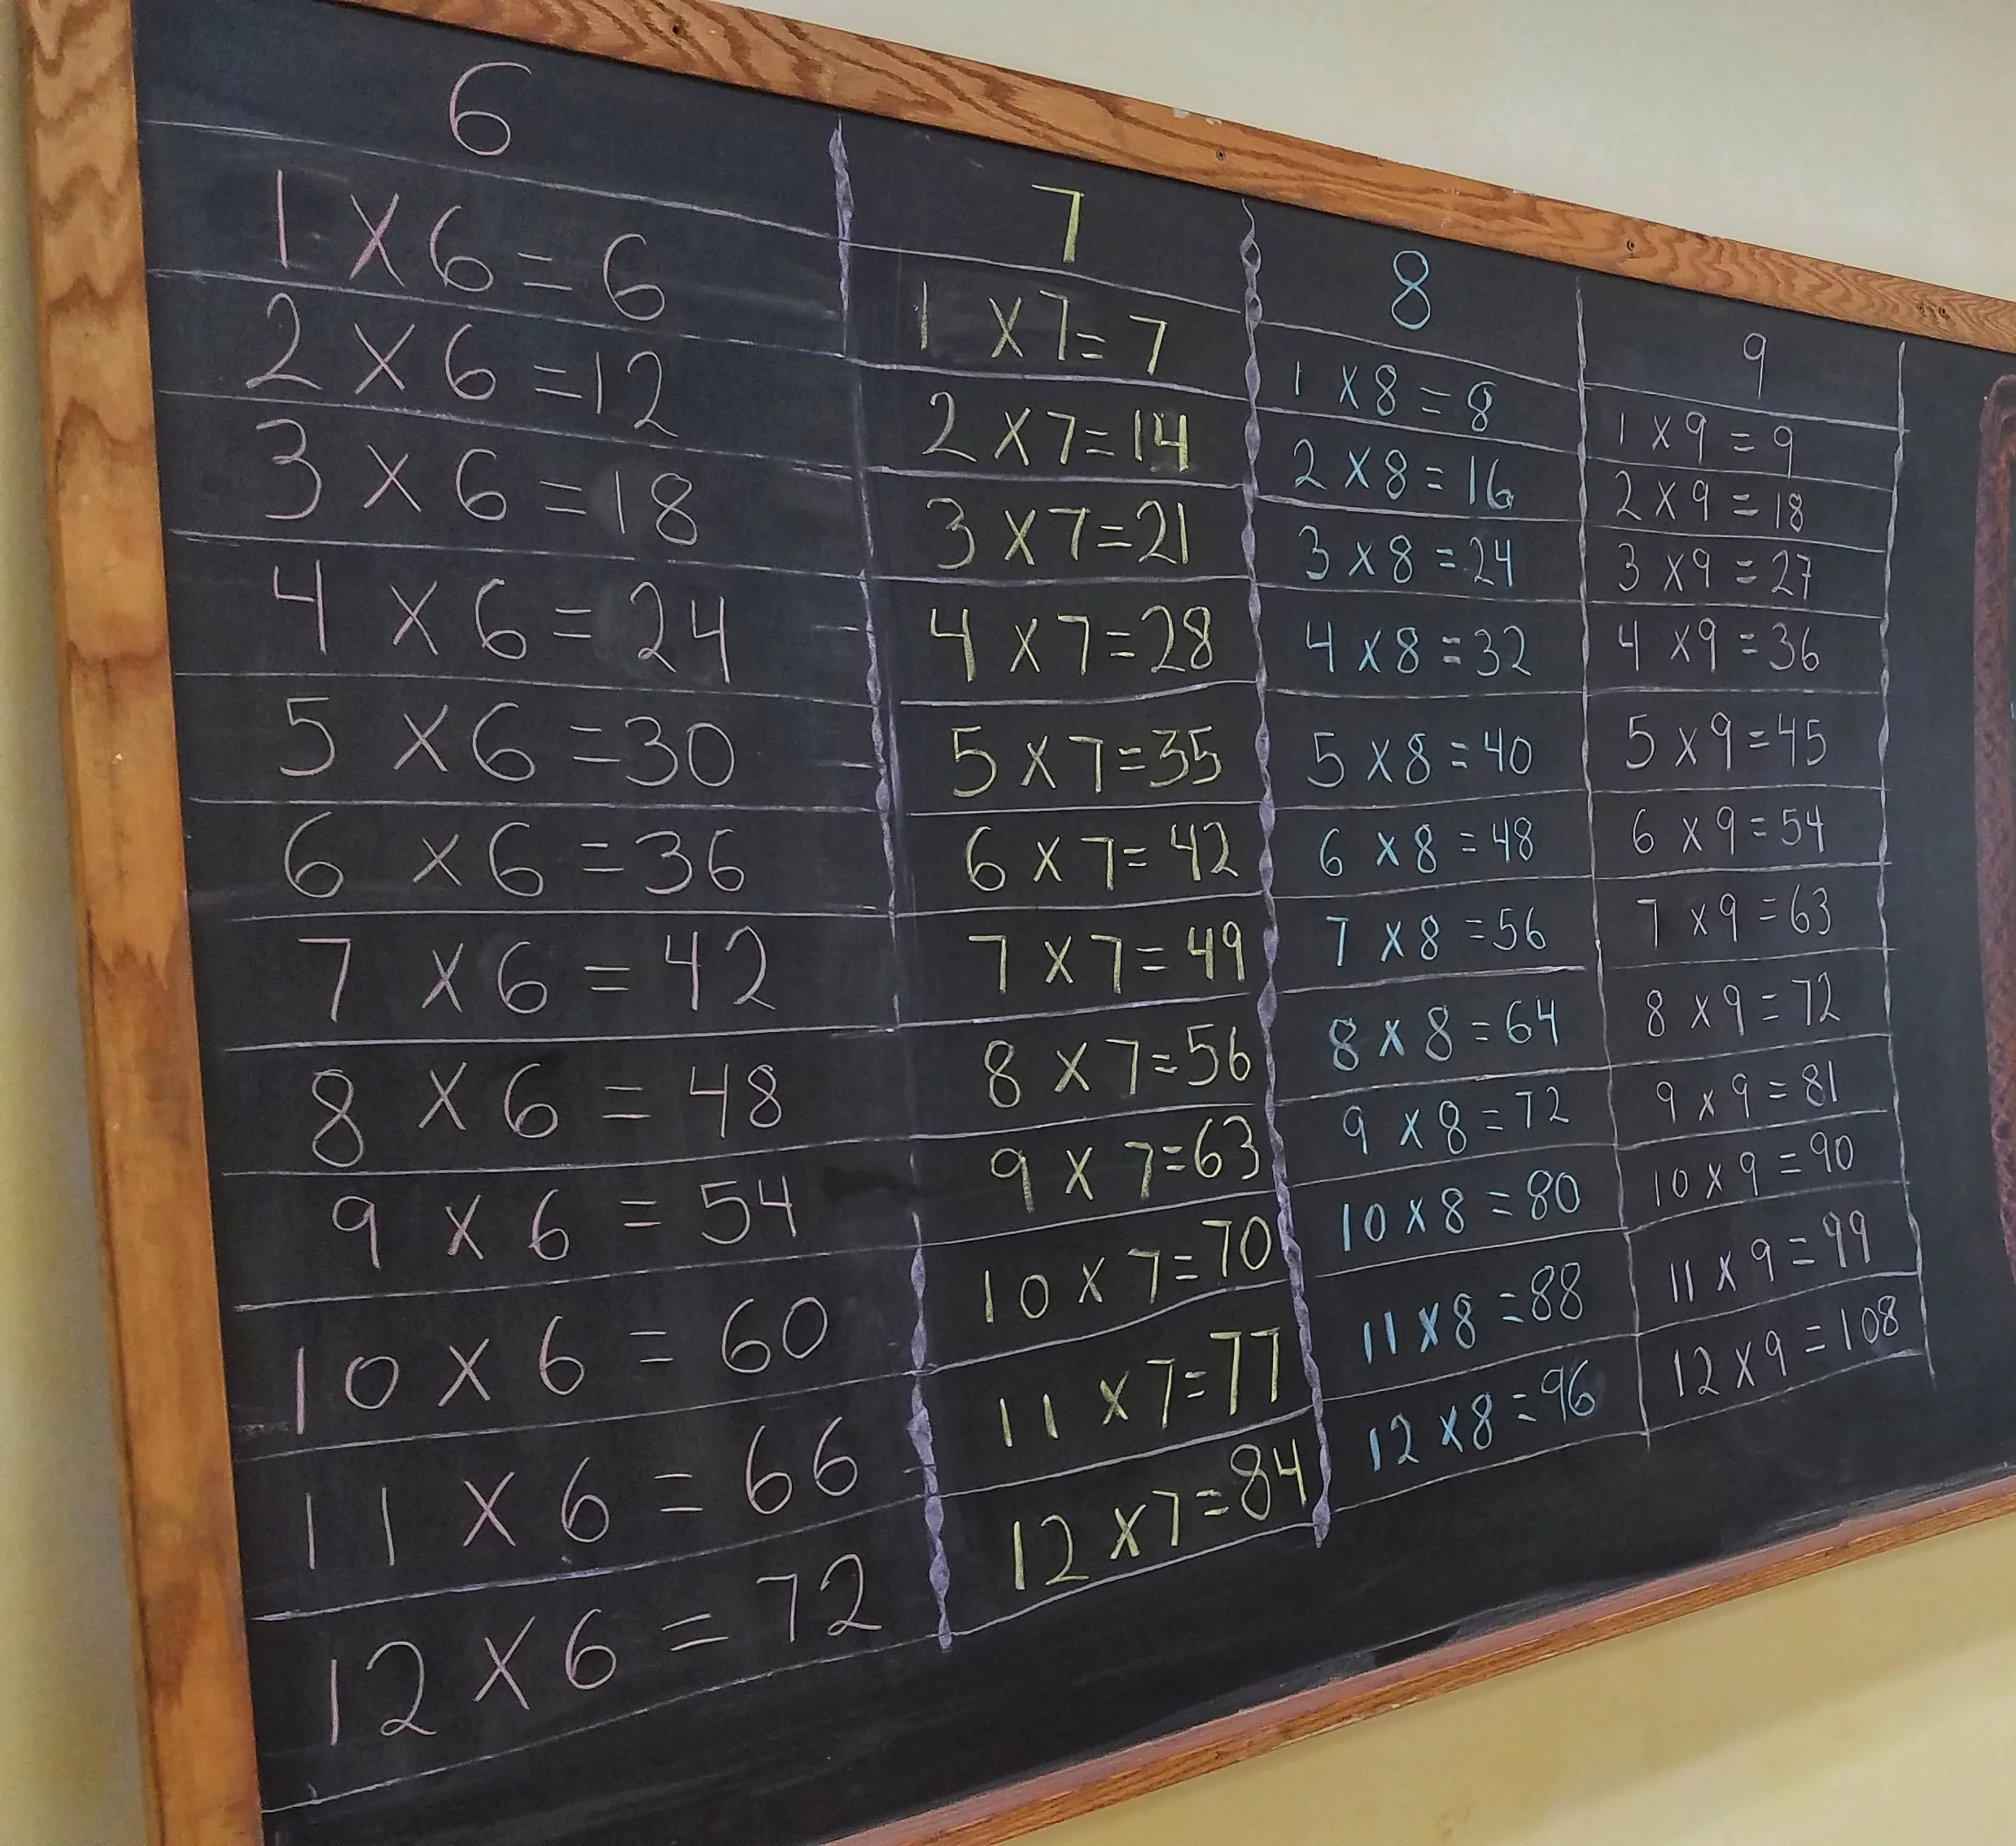 6
1 X 6 = 6
2 X 6 = 12
3 X 6 = 18
4 X 6 = 24
5 X 6 = 30
6 X 6 = 36
7 X 6 = 42
8 X 6 = 48
9 X 6 = 54
10 X 6 = 60
11 X 6 = 66
12 X 6 = 72
7
1 X 7 = 7
2 X 7 = 14
3 X 7 = 21
4 X 7 = 28
5 X 7 = 35
6 X 7 = 42
7 X 7 = 49
8 X 7 = 56
9 X 7 = 63
10 X 7 = 70
11 X 7 = 77
12 X 7 = 84
8
1 X 8 = 8
2 X 8 = 16
3 X 8 = 24
4 X 8 = 32
5 X 8 = 40
6 X 8 = 48
7 X 8 = 56
8 X 8 = 64
9 X 8 = 72
10 X 8 = 80
11 X 8 = 88
12 X 8 = 96
9
1 X 9 = 9
2 X 9 = 18
3 X 9 = 27
4 X 9 = 36
5 X 9 = 45
6 X 9 = 54
7 X 9 = 63
8 X 9 = 72
9 X 9 = 81
10 X 9 = 90
11 X 9 = 99
12 X 9 = 108